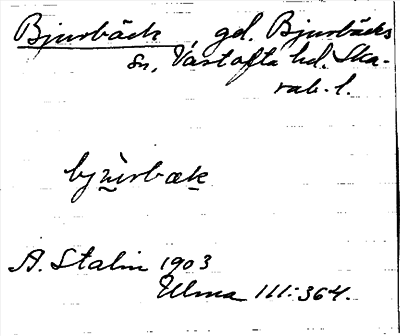 Bjurbäck, gd. Bjurbäcks
sn, Vartofta hd. Ska-
rab. l.
bjùrbæk
A. Stalin 1903
Ulma 111:364.